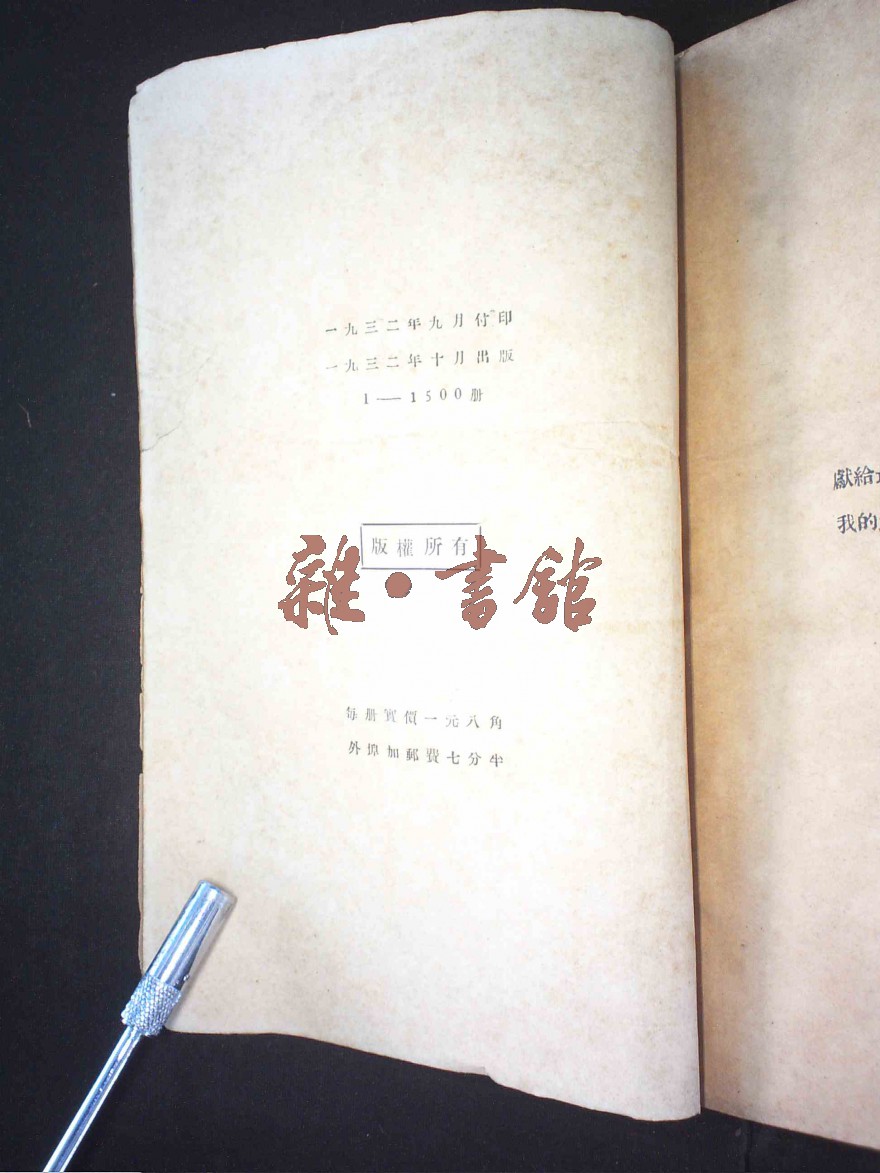 一九三二年九月付印
一九三二年十月出版
1——1500册
版權所有
雜·書館
每册實價一元八角
外埠加郵費七分半
獻給
我的